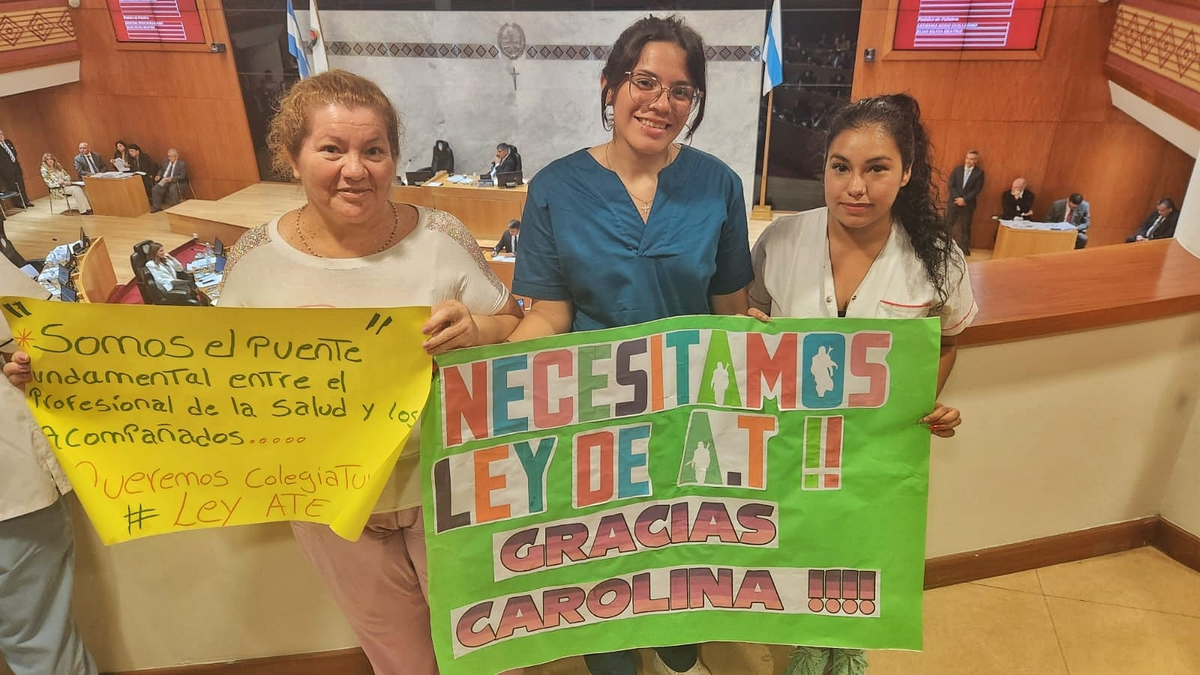 " Somos el Puente "
undamental entre el
Profesional de la Salud y los
Acompañados.....
Queremos Colegiatu
# Ley ATE
NECESITAMOS
LEY DE A.T !!
GRACIAS
CAROLINA !!!!